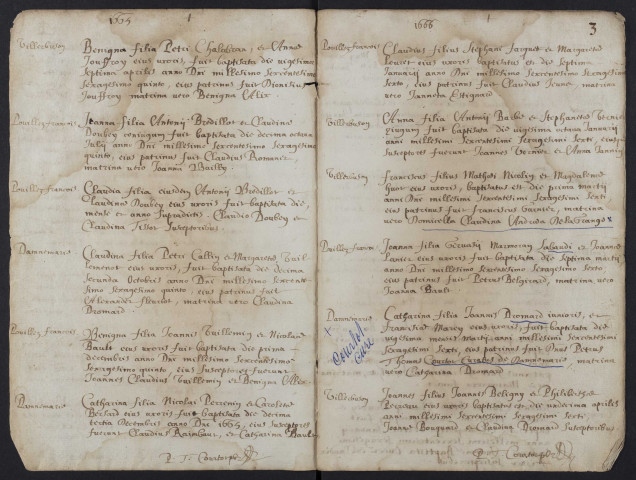 1665
Villersbuson
Benigna filia Petri Chabobicar, et Anna
Jouffroy eius uxoris, fuit baptisata die vigesima
septima aprilis anno Dni millesimo sexcentesimo
sexagesimo quinto, eius patrinus fuit Dionisius
Jouffroy matrina vero Benigna
Pouilley francois
Joanna filia Antonij Brodillot et Claudina
Doubey coniugum fuit baptisata die decima octava
Julij anno Dni millesimo sexcentesimo sexagesimo
quinto, eius patrinus fuit Claudius Romanet
matrina vero Joanna Bailly
Pouilley francois
Claudia filia eiusdem Antonij Brodillot et
Claudina Doubey eius uxoris fuit baptisata die,
mense et anno supradictis. Claudio Doubey et
Claudia Tissot susceptoribus.
Dannemarie
Claudina filia Petri Callin et Margareta Vuil
lemenot eius uxoris, fuit baptisata die decima
secunda octobris anno Dni millesimo sexcent
sexagesimo quinto, eius patrinus fuit
Alexander matrina vero Claudina
Dromard
Pouilley francois
Benigna filia Joannis Vuillemin et Nicolaa
Bault eius uxoris fuit baptisata die prima
decembris anno Dni millesimo sexcentesimo
sexagesimo quinto, eius susceptores fuerunt
Joannes Claudius Vuillemin et Benigna
Dannemarie
Catharina filia Nicolai Perrenin et Caroleta
Bersard eius uxoris fuit baptisata die decima
tertia decembris anno Dni 1665, eius susceptores
fuerunt Claudius Rainbaut, et Catharina Bault
1666
3
Pouilley francois
Claudius filius Stephani Jacquet et Margareta
eius uxoris baptisatus est die septima
Januarij anno Dni millesimo sexcentesimo sexagesimo
sexto, eius patrinus fuit Claudius matrina
vero Janneta
Villersbuson
Anna filia Antonij Barbe et Stephaneta
coniugum fuit baptisata die vigesima octava Januarij
anni millesimi sexcentesimi sexagesimi sexti, eius
susceptores fuerunt Joannes et Anna
Villersbuson
Franciscus filius Mathei Nicolin et Magdalena
Huot eius uxoris, baptisatus est die prima martij
anni Dni millesimi sexcentesimi sexagesimi sexti
eius patrinus fuit Franciscus Garnier, matrina
vero Domicella Claudina Andrida Delagrange
Pouilley francois
Joanna filia Gervasij Marmoran Sabaudi et Joanna
Lanier eius uxoris fuit baptisata die septima martij
anno millesimo sexcentesimo sexagesimo sexto,
eius patrinus fuit Petrus Belgrand, matrina vero
Joanna Bault
Dannemarie
+
Courtot
curé
Catharina filia Joannis Dromard iunioris, et
Francisca Marey eius uxoris fuit baptisata die
vigesima nona martij anni millesimi sexcentesimi
sexagesimi sexti, eius patrinus fuit Dnus Petrus
Thomas Courtot Curatus de Dannemarie, matrina
vero Catharina Dromard
Villersbuson
Joannes filius Joannis Beligny et Philiberta
Perreau eius uxoris baptisatus est die undecima aprilis
anni millesimi sexcentesimi sexagesimi sexti,
Joanne Bougnard et Claudina Dromard susceptoribus